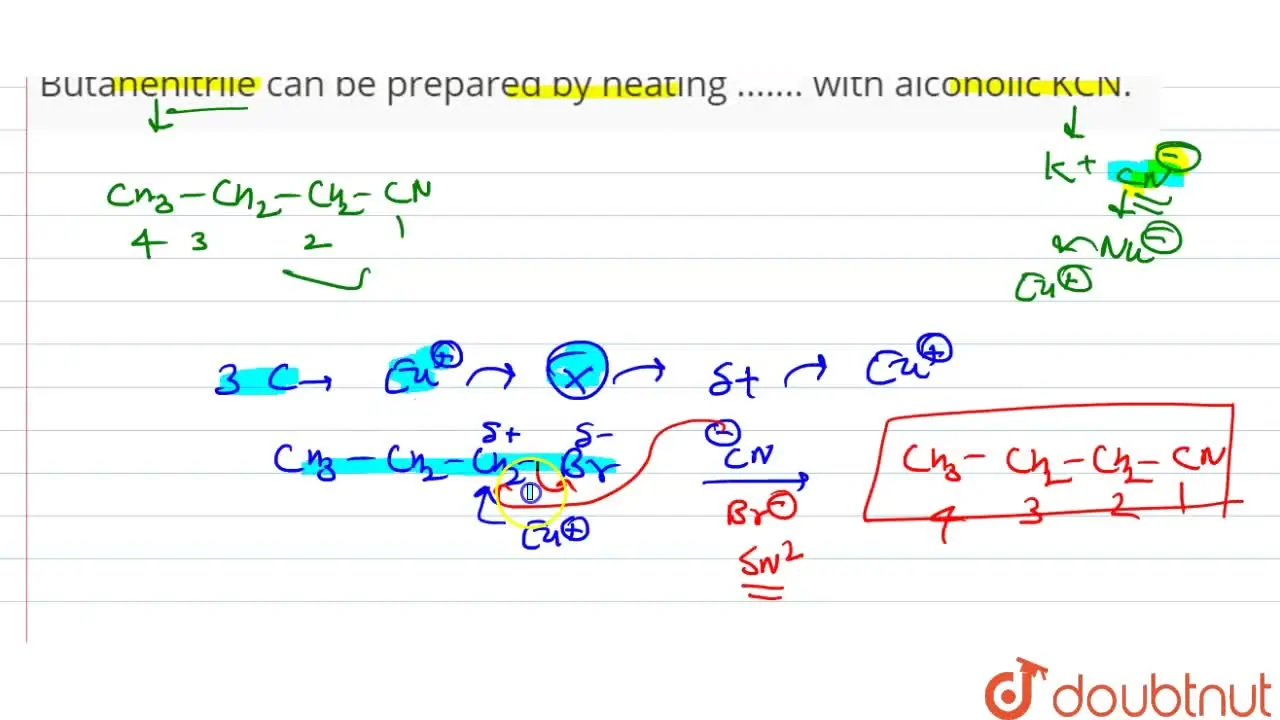 Butanenitrile can be prepared by heating ....... with alcoholic KCN.
K+ CN⊖
CH3-CH2-CH2-CN
4 3 2 1
Nu⊖
Eu⊕
3 C → Eu⊕ → X → δ+ → Eu⊕
δ+ δ-
CH3-CH2-CH2-Br ⊖CN CH3-CH2-CH2-CN
Br⊖ 4 3 2 1
Eu⊕
SN2
doubtnut